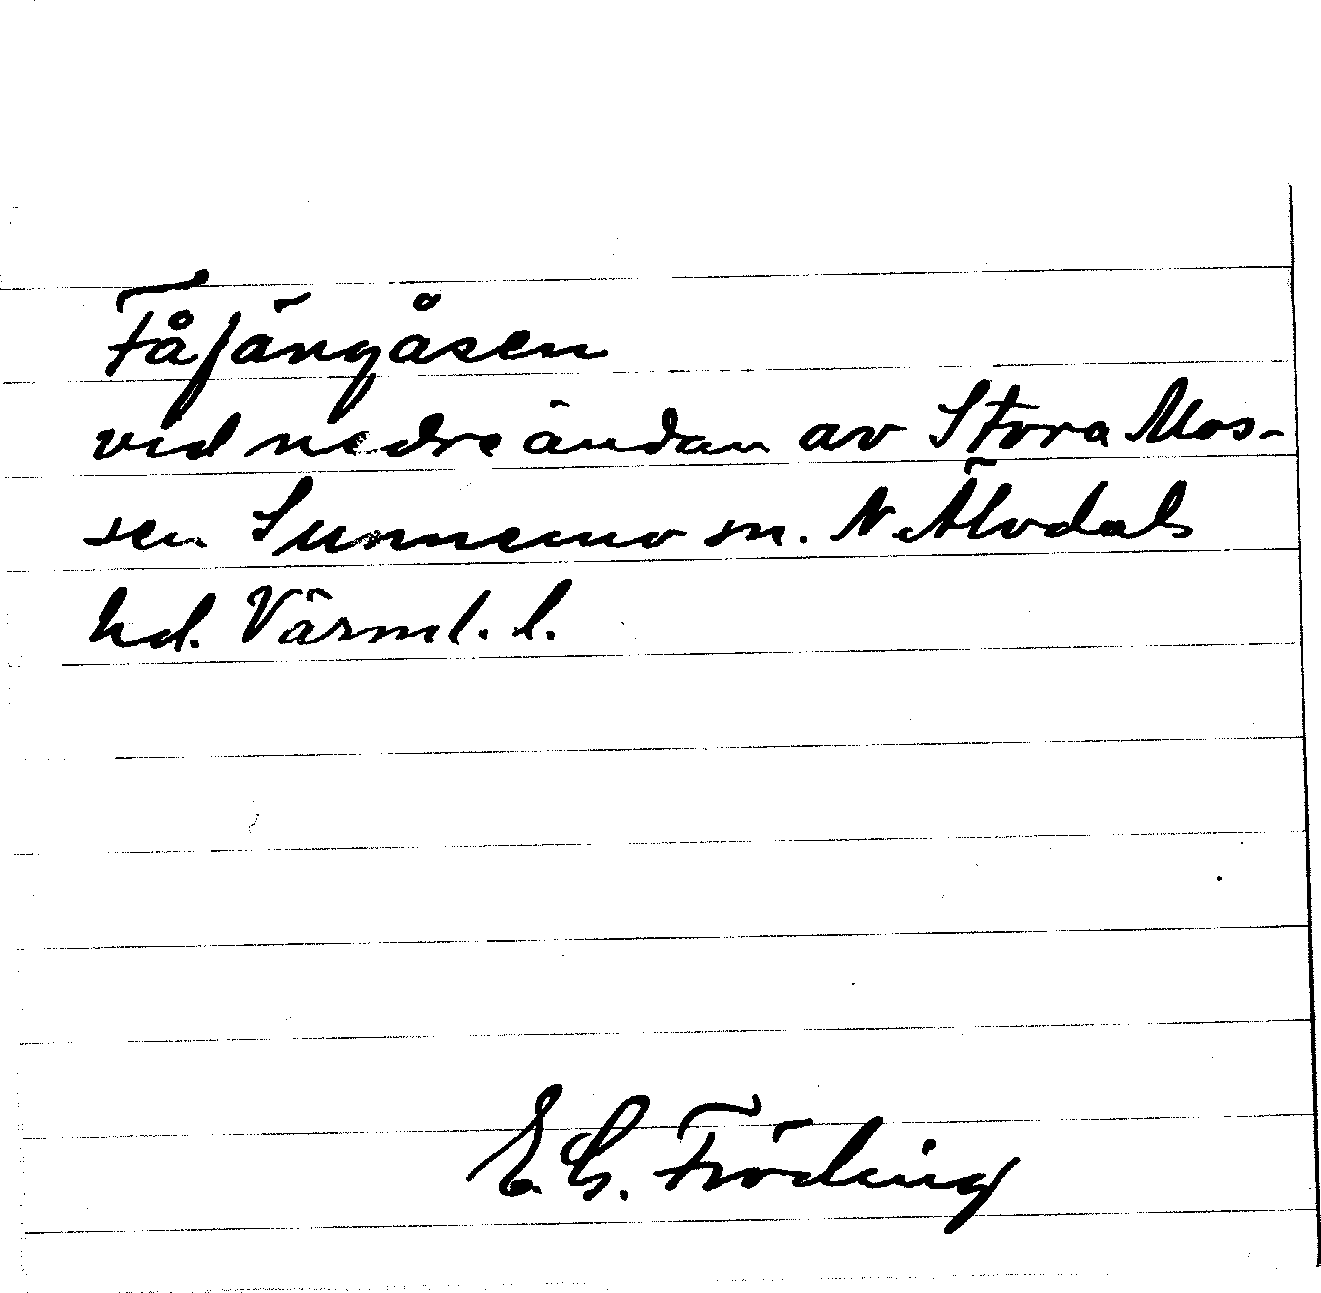 Fåfängåsen
vid nedre ändan av Stora Mos-
sen Sunnemo sn. N. Älvdals
hd. Värml. l.
E. G. Fröding